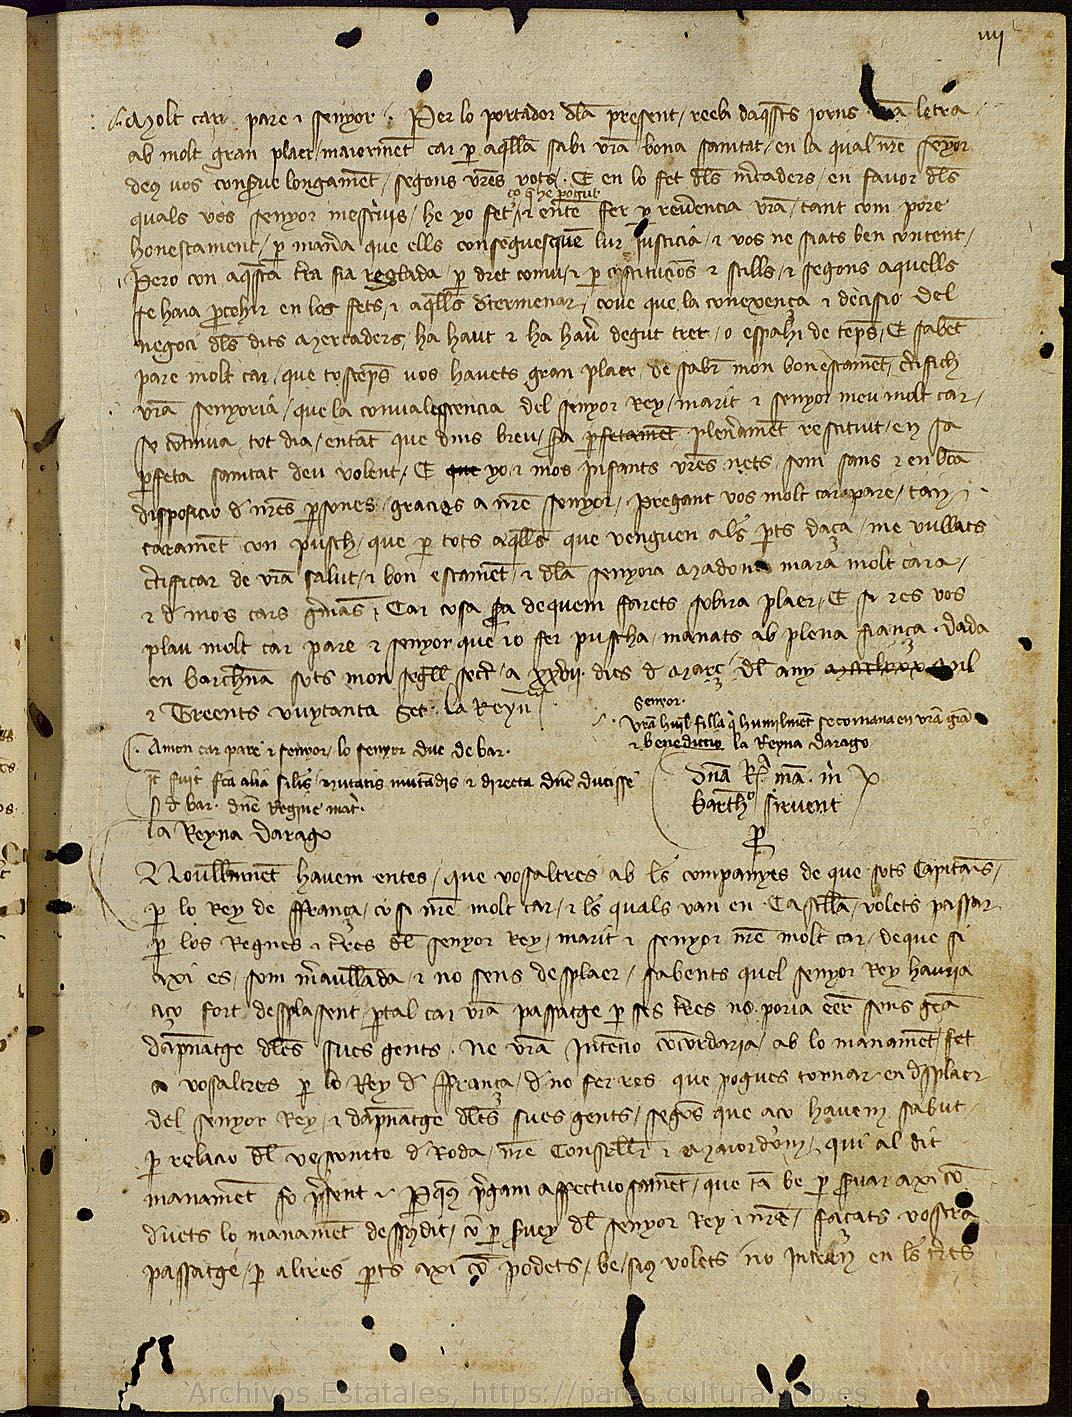 iiij
Molt car pare i senyor. Per lo portador dla present / reebi daqsts jorns vra letra
ab molt gran plaer / maiormet car p aqlla sabi vra bona sanitat / en la qual nre senyor
deus vos conserve longamet / segons vres vots. E en lo fet dls mcaders / en favor dls
ço q he pogut
quals vos senyor mescrivis / he yo fet / i ente fer p reverencia vra / tant com pore
honestament / p manera que ells conseguesquen lur justicia / i vos ne siats ben content /
Pero con aqsta tra sia reglada / p dret comu / i p constitucions i stills / i segons aquells
se haia procehir en los fets / i aqlls dtermenar / cove que la conexença i decisio del
negoci dls dits mercaders / ha haut i ha haver degut tret / o espahi de teps / E sabet
pare molt car / que tosteps vos havets gran plaer de sabr mon bon estamet / ctifich
vra senyoria / que la convalescencia del senyor Rey / marit i senyor meu molt car /
se continua tot dia / entat que dins breu / sera pfetamet plenamet restituit / en sa
pfeta sanitat deu volent / E que yo i mos infants vres nets / som sans i en bona
disposicio d nres psones / gracies a nre senyor / Pregant vos molt car pare / tan
caramet con pusch / que p tots aqlls que venguen als pts daça / me vullats
ctifficar de vra salut / i bon estamet / i dla senyora madona mara molt cara /
i d mos cars gmas / Car cosa sera dequem farets sobira plaer / E si res vos
plau molt car pare i senyor que io fer puscha / manats ab plena fiança. Dada
en Barchna sots mon segell secr / a xxvii dies d Març dl any Mccclxxx Mil
i Treents vuytanta set. La Reyna
Senyor
vra huil filla q humilmet se comana en vra gra
i benediccio la Reyna darago
A mon car pare i senyor / lo senyor duc de bar.
It fuit fca alia silis mutatis mutadis i directa dne ducisse
d bar. dne Regine matr.
Dna Ra. ma. m
Barthо sirvent
La Reyna darago
Novellamet havem entes / que vosaltres ab les companyes de que sots Capitans /
p lo Rey de ffrança / cosi nre molt car / i ls quals van en Castella / volets passar
p los Regnes i tres dl senyor Rey / marit i senyor nre molt car / deque si
axi es / som maravellada / i no sens desplaer / sabents quel senyor Rey hauria
aço fort desplasent / ptal car vra passatge p ses tres no poria eer sens gra
dapnatge dles sues gents. Ne vra intencio concordaria ab lo manamet fet
a vosaltres p lo Rey d ffrança / d no fer res que pogues tornar en dsplaer
del senyor Rey / i dapnatge dles sues gents / segos que aço havem sabut /
p relacio dl vescomte d Roda / nre Conseller i maiordom / qui al dit
manamet fo psent. Pqus pgam affectuosamet / que ta be p servar axi co
devets lo manamet dessusdit / co p servey dl senyor Rey i nre / façats vostra
passatge / p altres pts axi co podets / be / sius volets no intran en ls tres
Archivos Estatales, https://pares.cultura.gob.es